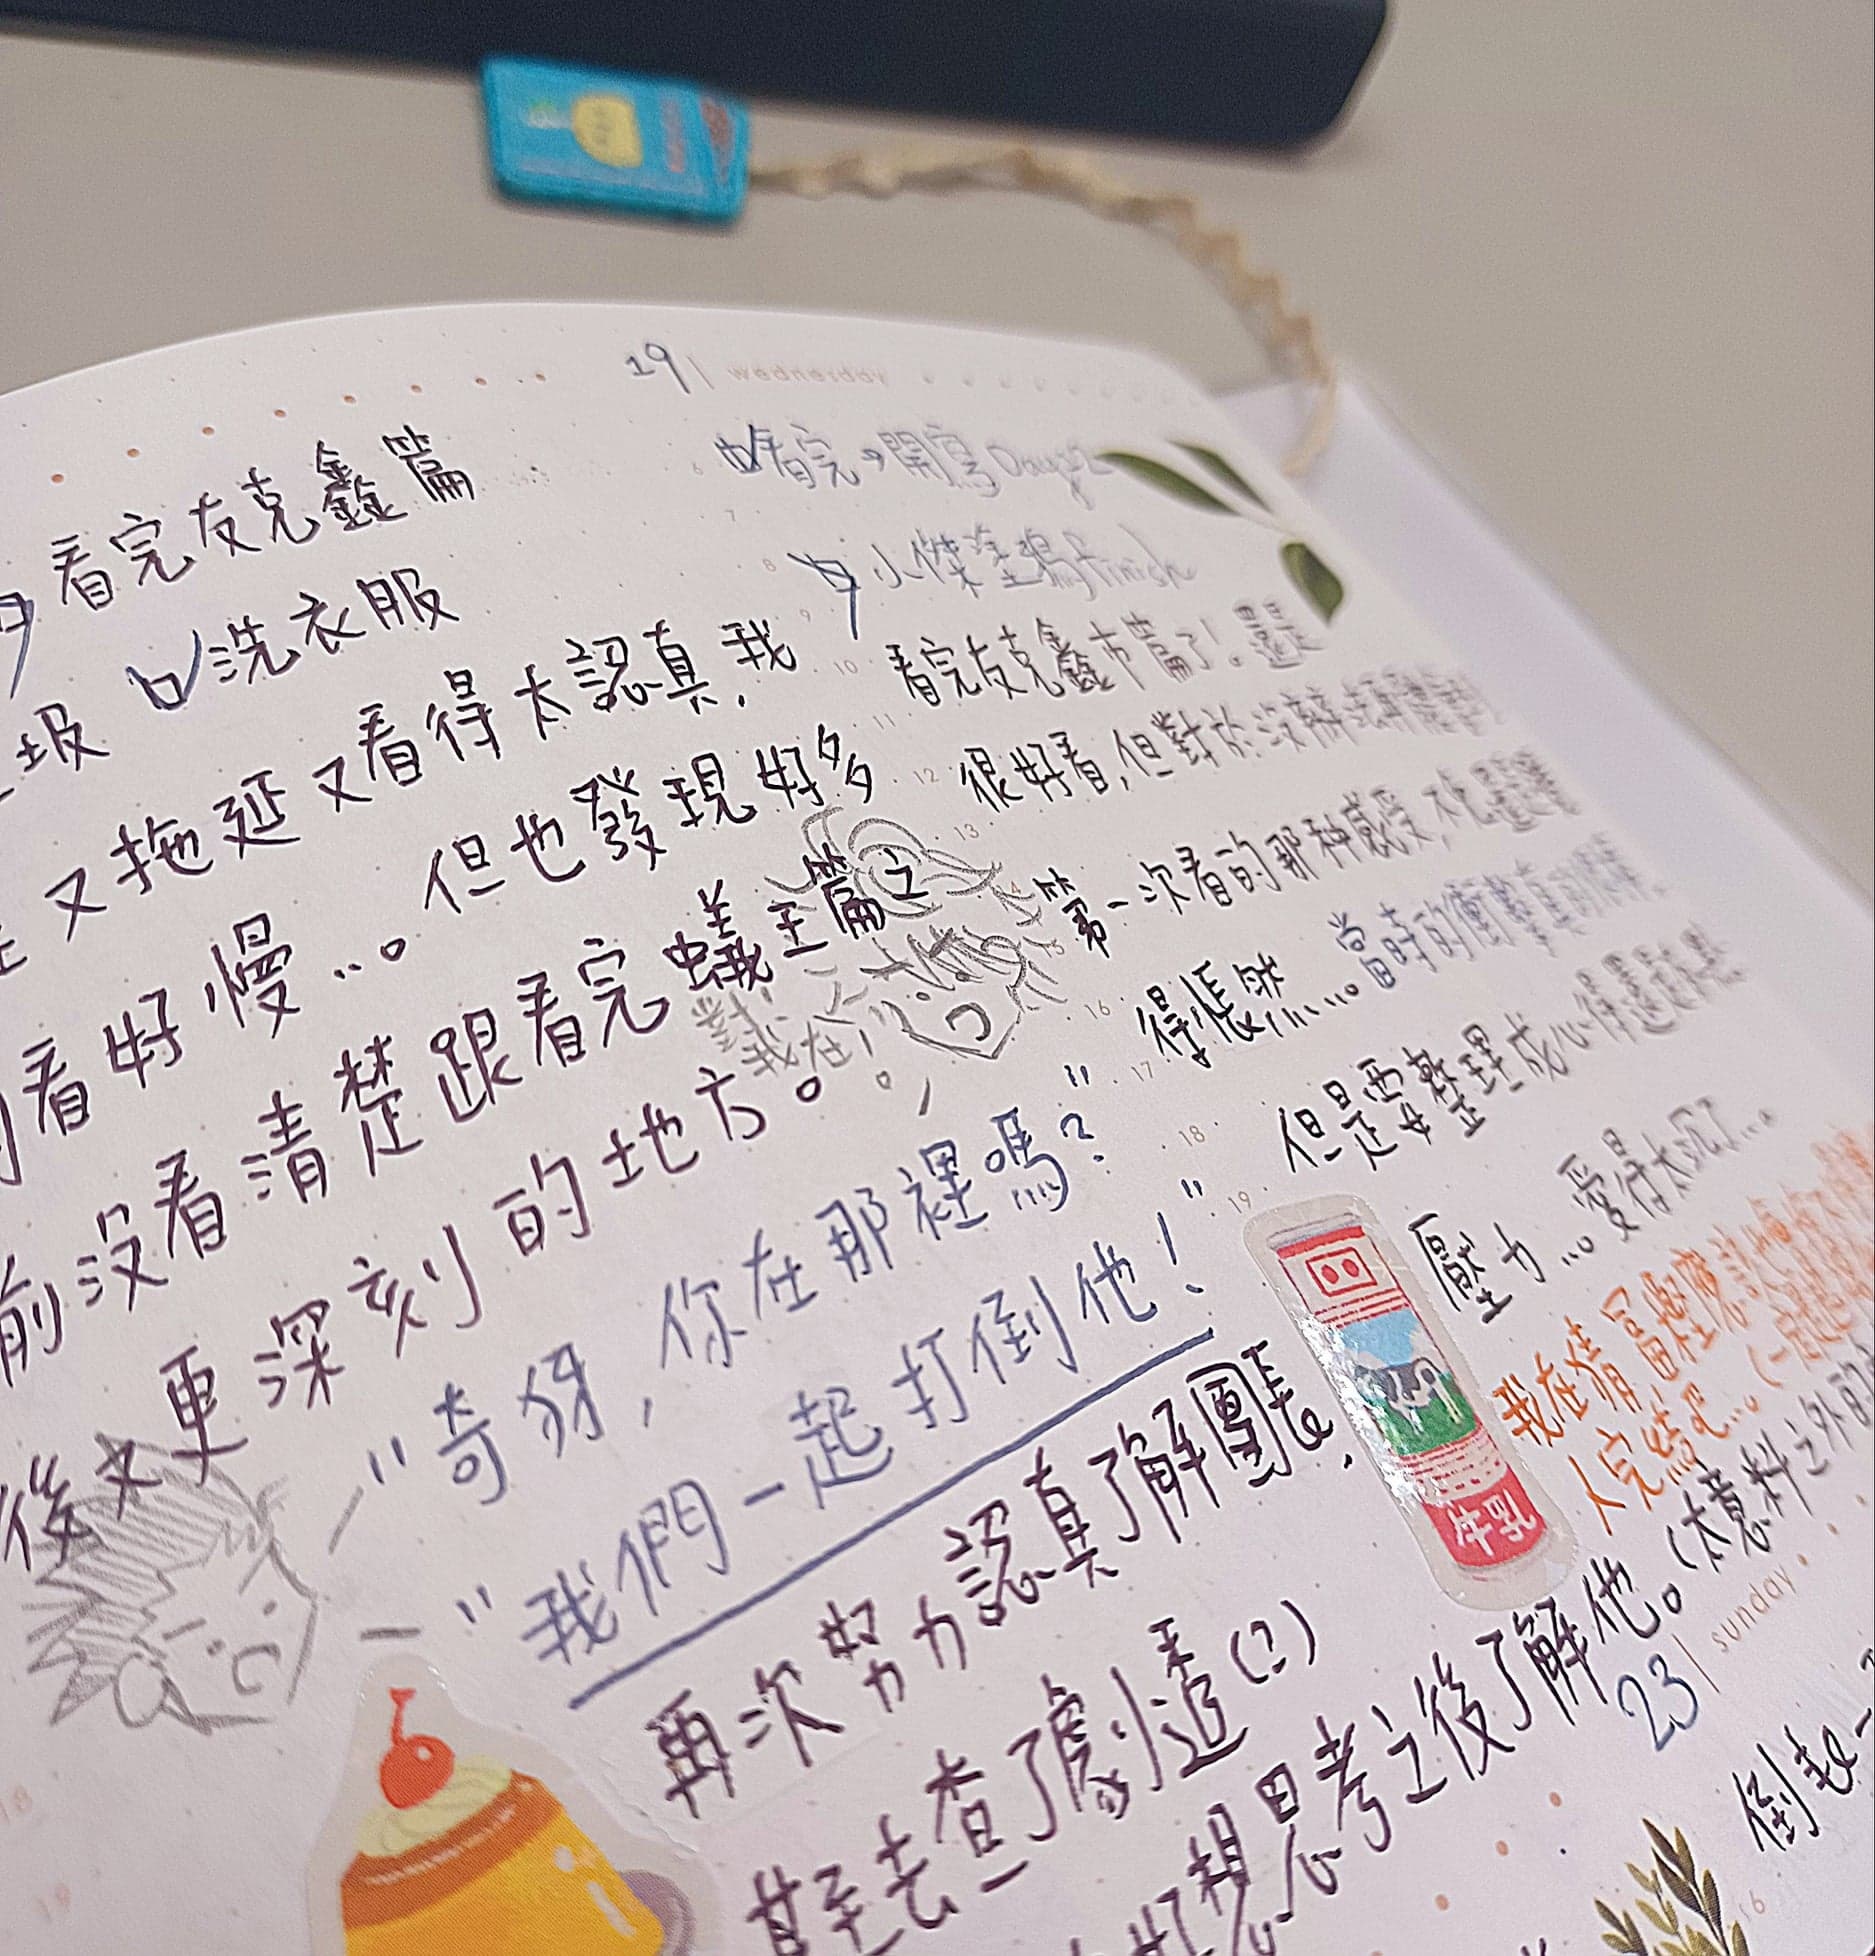 19 | wednesday
看完友克鑫篇
洗衣服
圾
又拖延又看得太認真,我
看好慢...。但也發現好多
前沒看清楚跟看完蟻王篇之
後又更深刻的地方。
對!我在!
"奇犽,你在那裡嗎?"
"我們一起打倒他!"
再次努力認真了解團長,
甚至去查了劇透(?)
想思考之後了解他。(太意料之外
看完,開寫Day
小傑塗鴉finish
看完友克鑫市篇了!還是
很好看,但對於沒辦法再
第一次看的那種感受,不免
得悵然......。當時的衝擊真的
但是要整理成心得還是有點
壓力...。愛得太沉了...。
我在猜富樫應該
人完結吧...。(一定
牛乳
23 | sunday
倒數一